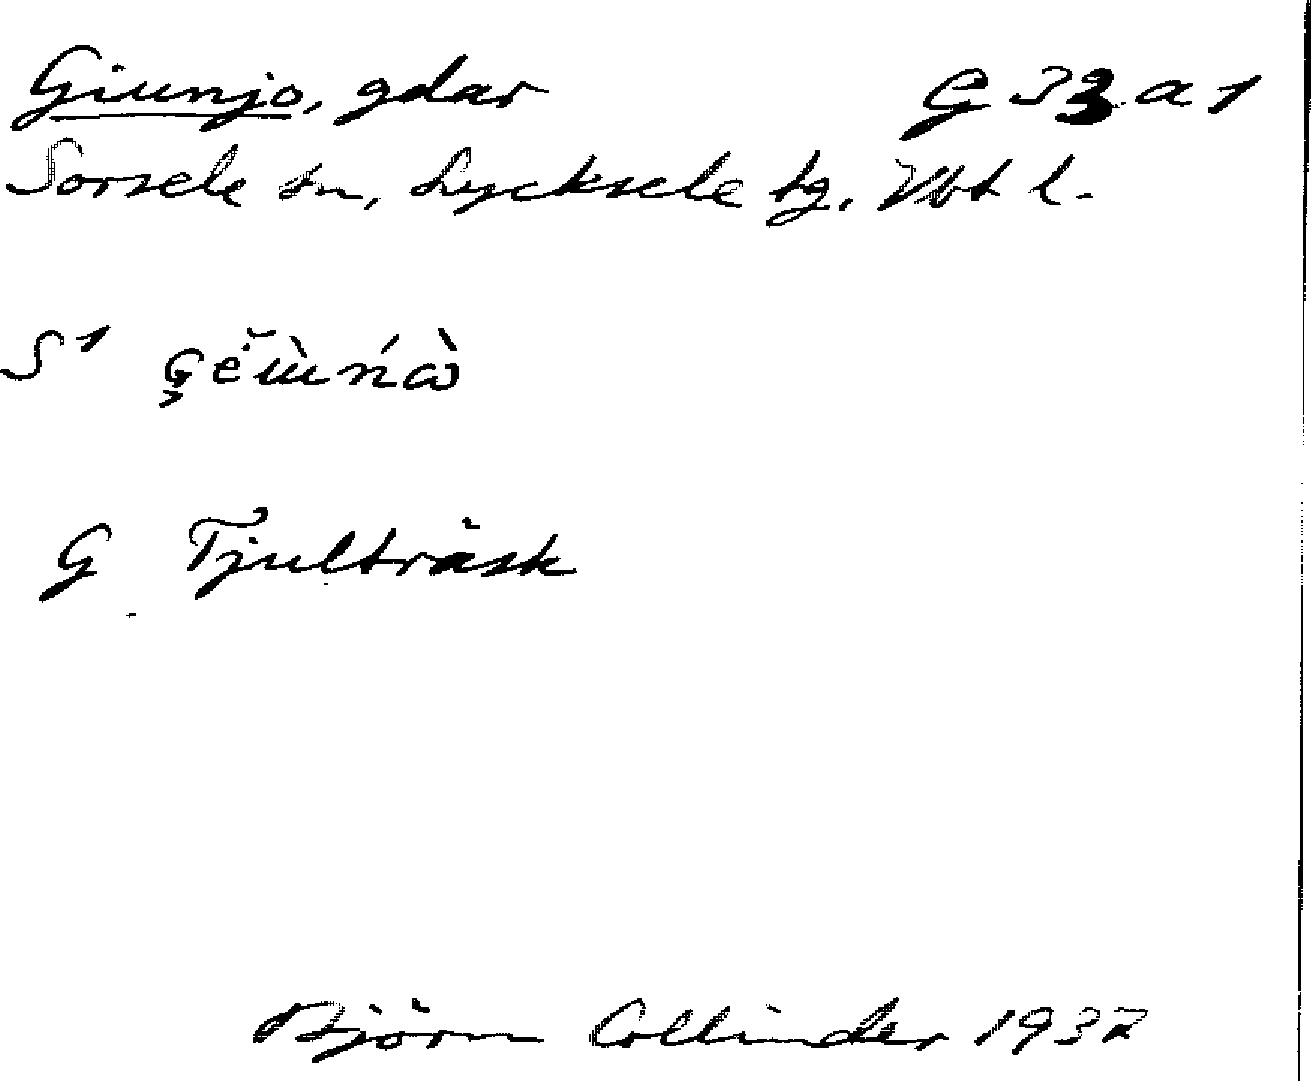 Giunjo, gdar G 33 a 1
Sorsele sn, Lycksele tg. Vbt l.
S¹
G Tjulträsk
Björn Collinder 1937